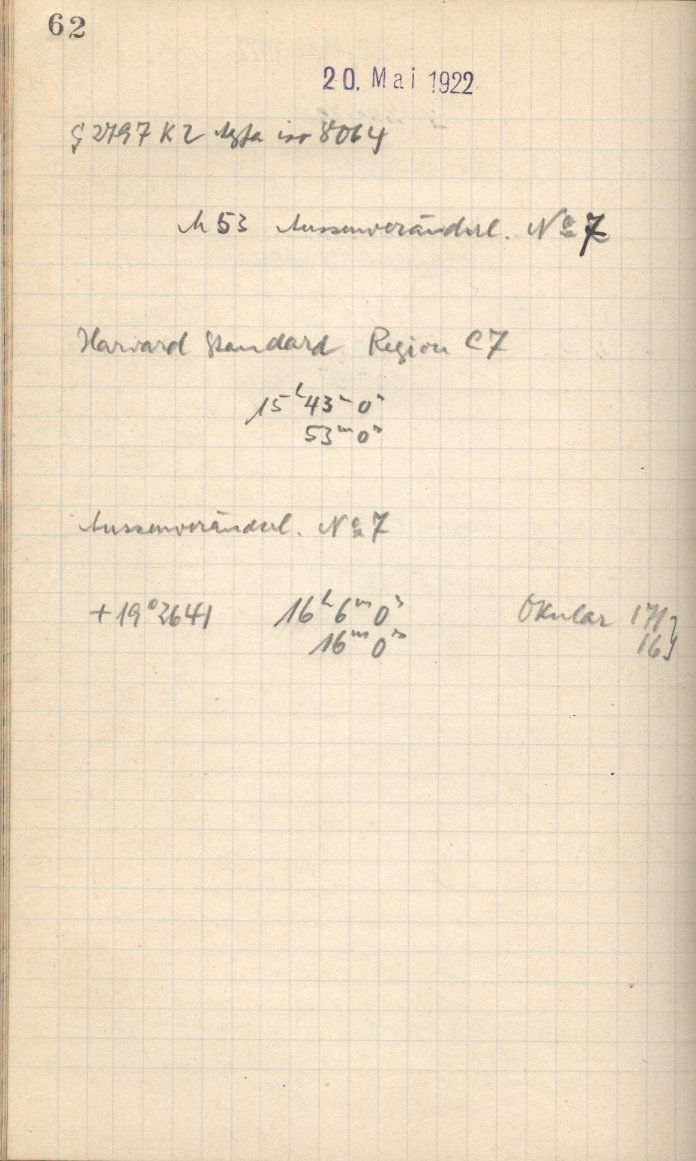 62
20. Mai 1922
G 2797 K2 Agfa iso 8064
M 53 Aussenveränderl. No 7
Harvard Standard Region C7
15h 43m 0s
53m 0s
Aussenveränderl. No 7
+19° 2641 16h 6m 0s Okular
16m 0s